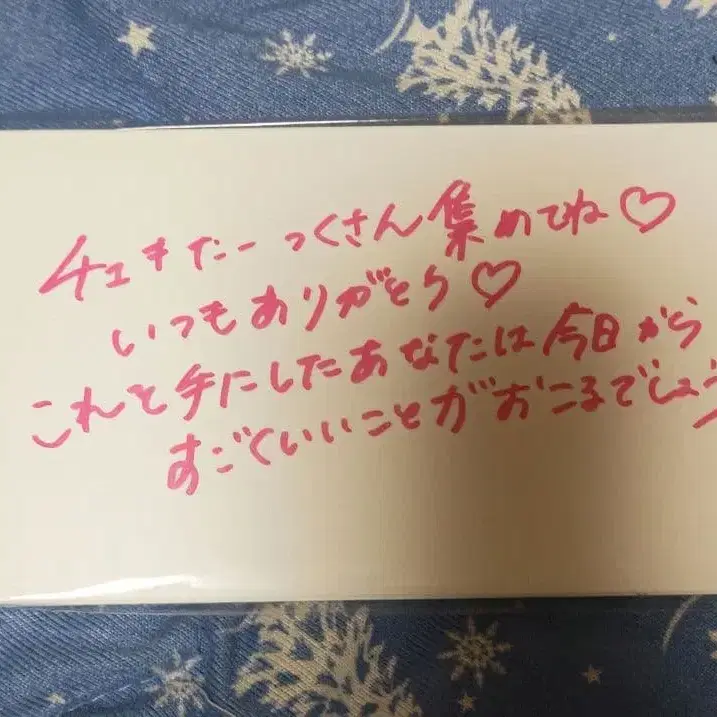 チェキたーっくさん集めてね♡
いつもありがとう♡
これを手にしたあなたは今日から
すごくいいことがおこるでしょう